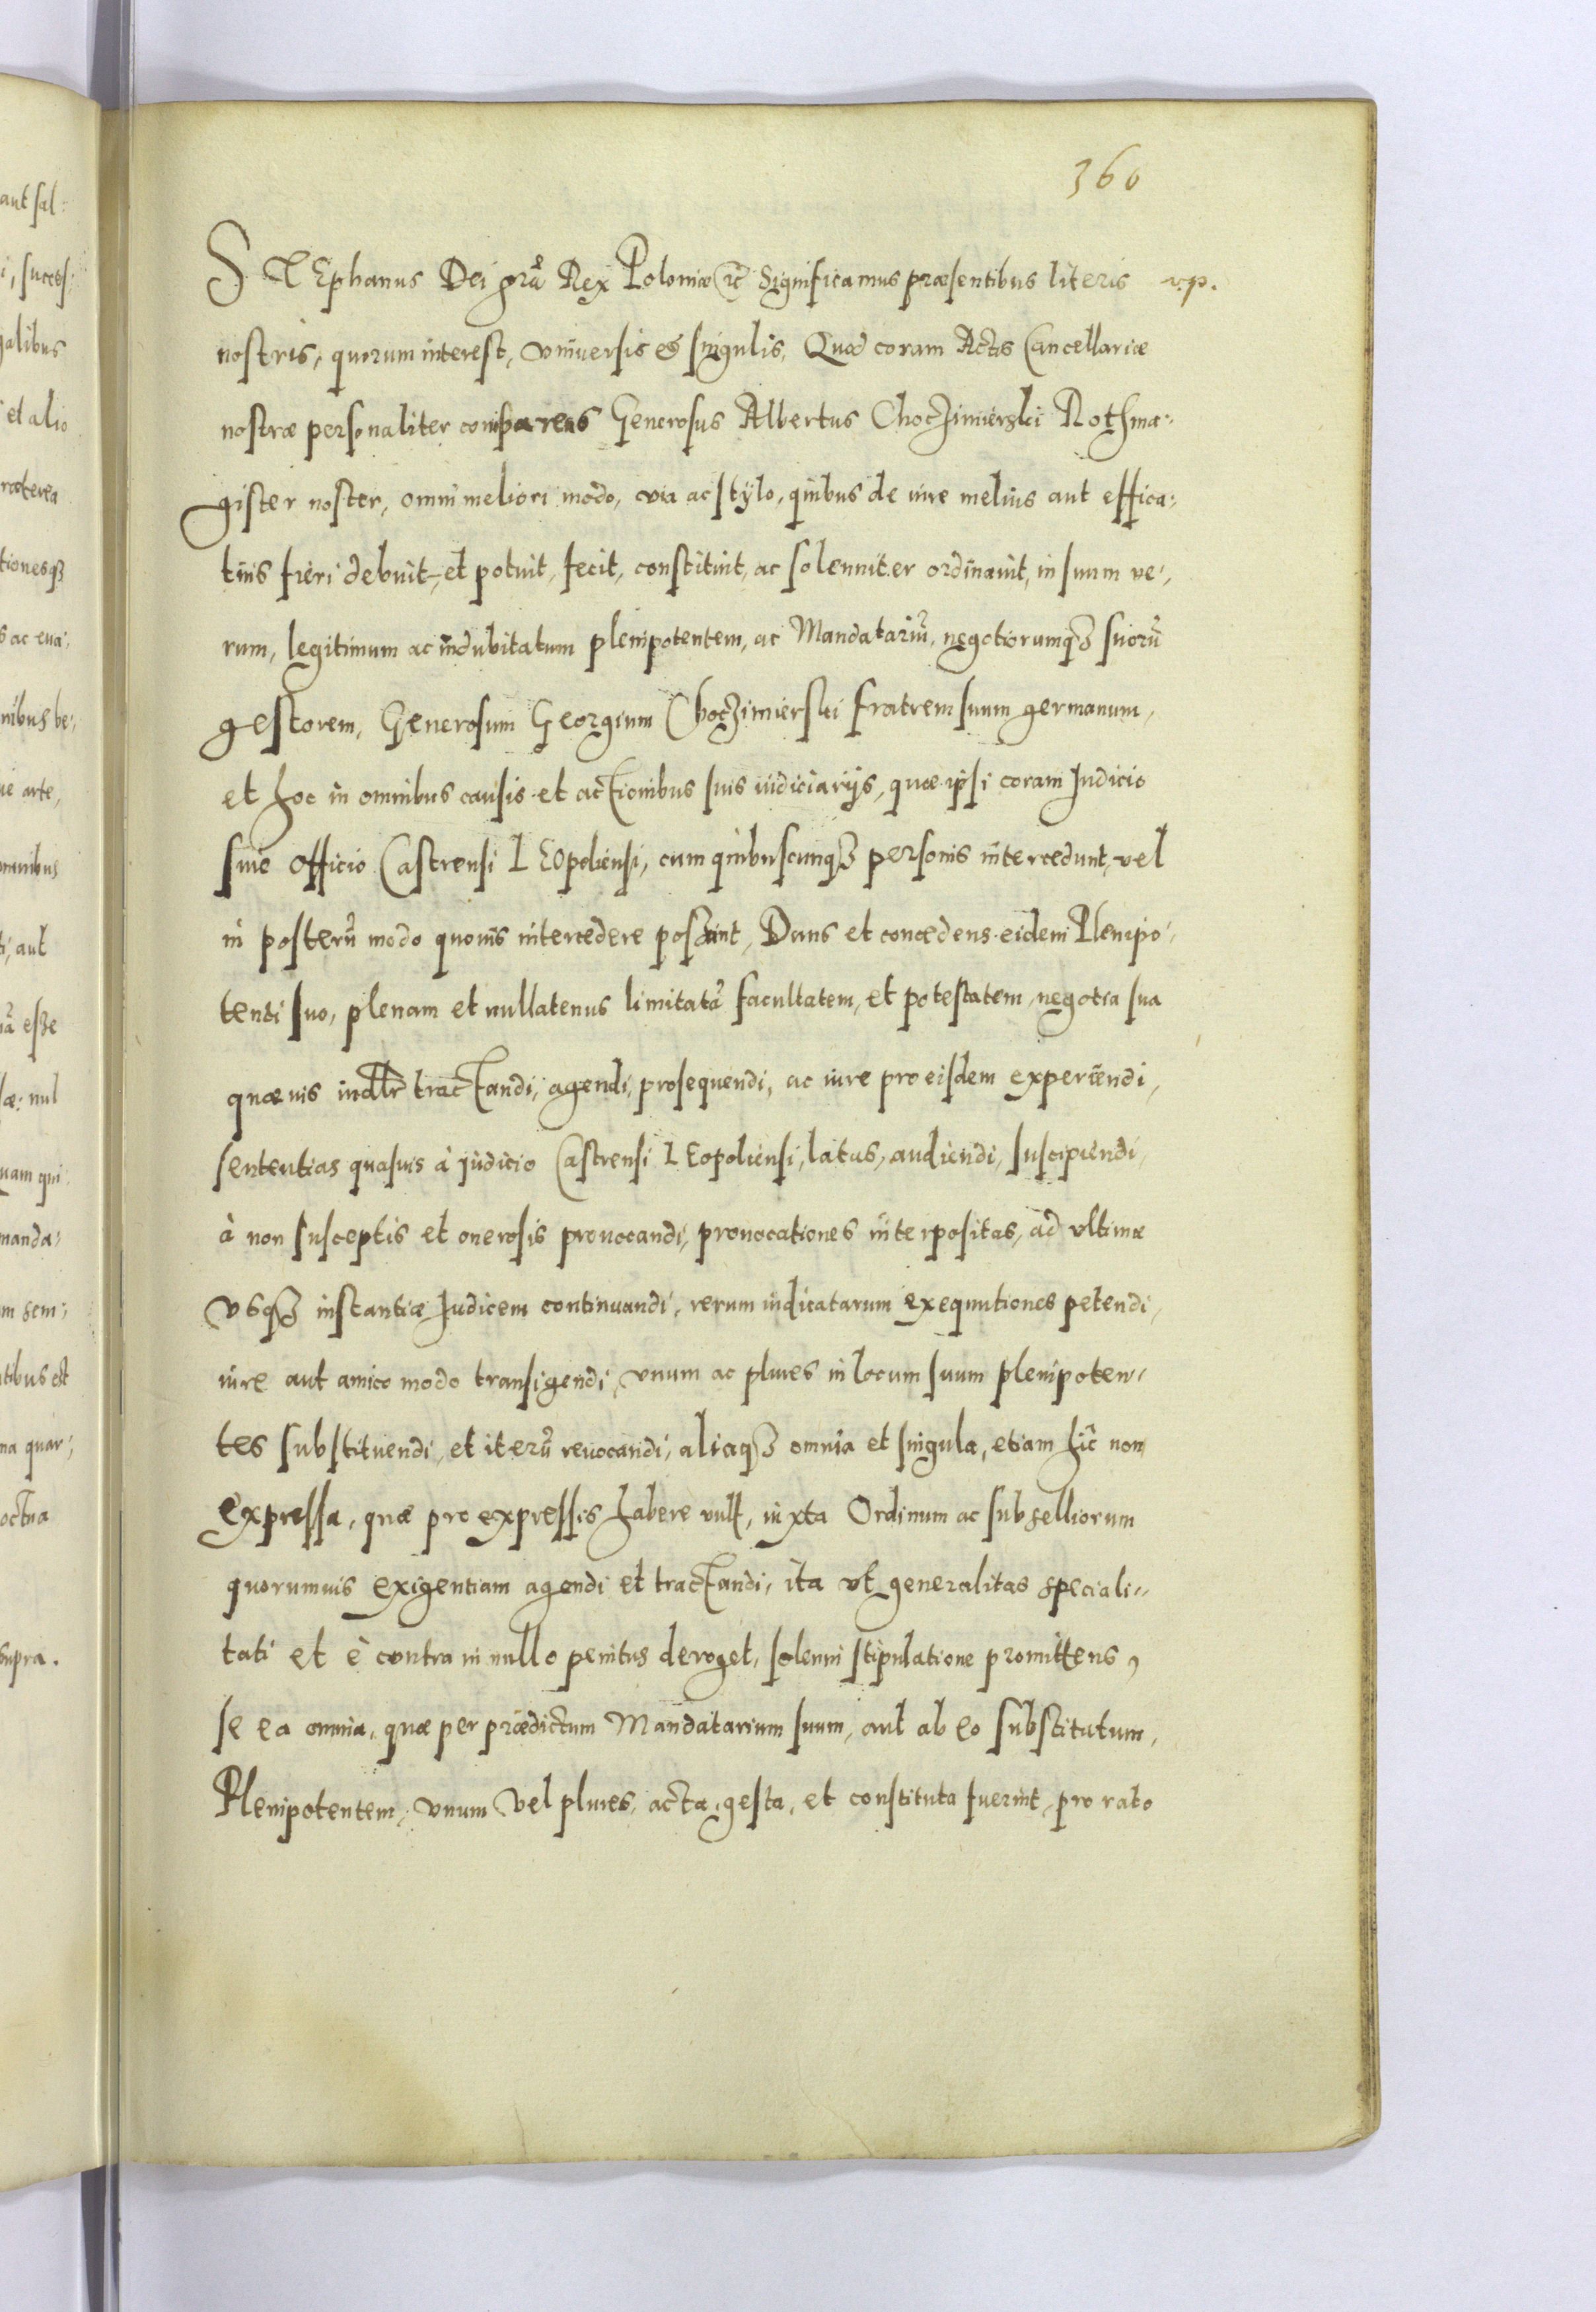 360
STEphanus Dei grã Rex Poloniæ ec̃ Significamus præsentibus literis v.p.
nostris, quorum interest, vniuersis et singulis, Quod coram Actis Cancellariæ
nostræ personaliter comparens Generosus Albertus Choczimierski Rothma:
gister noster, omni meliori modo, via ac stylo, quibus de iure melius aut effica:
tius fieri debuit, et potuit, fecit, constituit, ac solenniter ordinauit, in suum ve,
rum, legitimum ac indubitatum plenipotentem, ac Mandatariũ, negotiorumqʒ suorũ
gestorem, Generosum Georgium Choczimierski fratrem suum germanum,
et hoc in omnibus causis et actionibus suis iudiciarijs, quæ ipsi coram Judicio
siue officio Castrensi LEOpoliensi, cum quibuscunqʒ personis intercedunt, vel
in posterũ modo quouis intercedere possunt, Dans et concedens eidem Plenipo,
tenti suo, plenam et nullatenus limitatã facultatem, et potestatem, negotia sua
quæuis indltr̃ tractandi, agendi, prosequendi, ac iure pro eisdem experiendi,
sententias quasuis à iudicio Castrensi LEopoliensi, latas, audiendi, suscipiendi,
à non susceptis et onerosis prouocandi, prouocationes interpositas, ad vltimæ
vsqʒ instantiæ Judicem continuandi, rerum iudicatarum exequutiones petendi,
iure aut amico modo transigendi, vnum ac plures in locum suum plenipoten,
tes substituendi, et iterũ reuocandi, aliaqʒ omnia et singula, etiam hic non
expressa, quæ pro expressis habere vult, iuxta Ordinum ac subselliorum
quorumuis exigentiam agendi et tractandi, ita vt generalitas speciali,,
tati et è contra in nullo penitus deroget, solenni stipulatione promittens,
se ea omnia, quæ per prædictum Mandatarium suum, aut ab eo substitutum,
Plenipotentem, vnum vel plures, acta, gesta, et constituta fuerint, pro rato